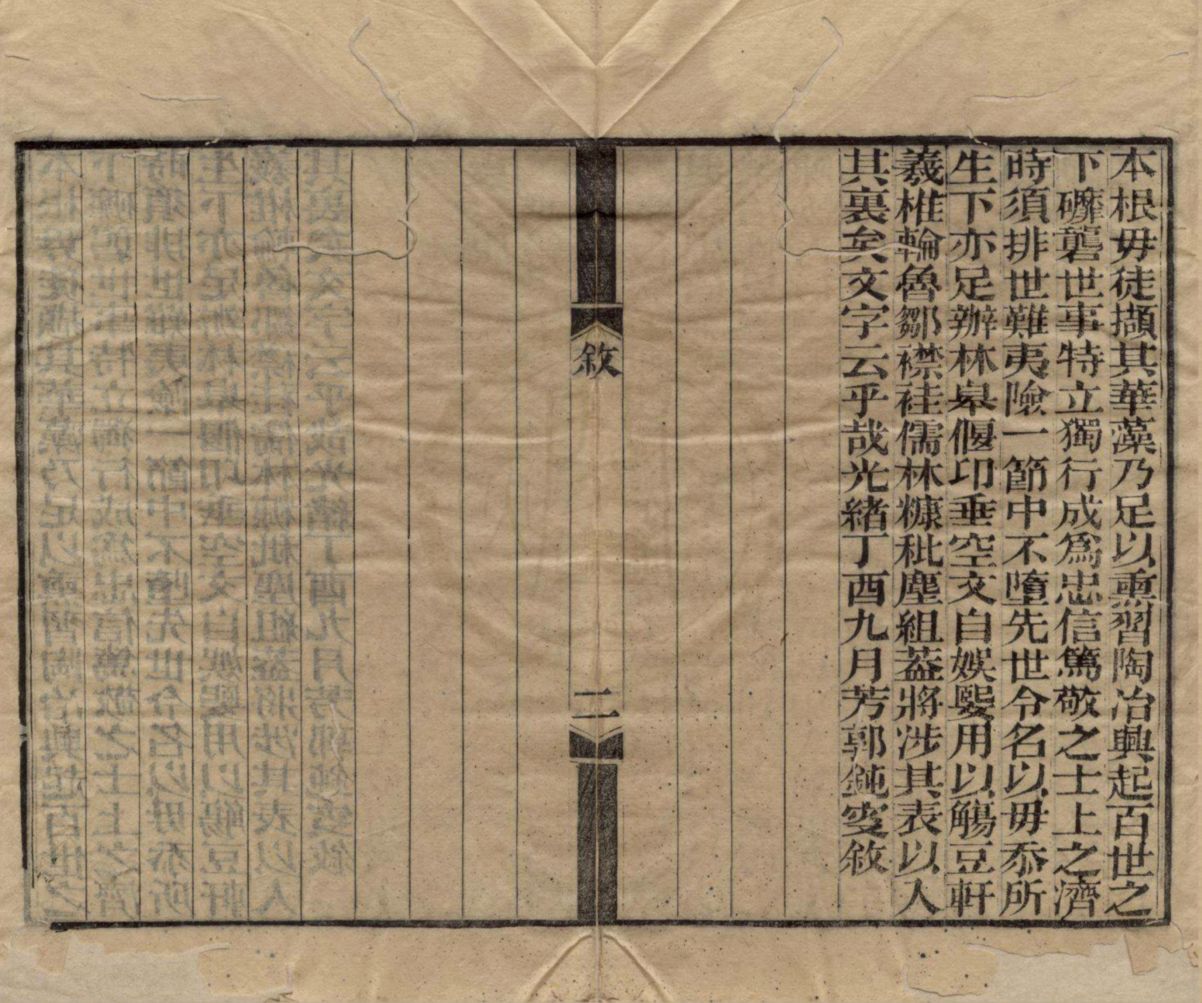 本根毋徒擷其華藻乃足以熏習陶冶興起百世之
下礲礱世事特立獨行成爲忠信篤敬之士上之濟
時須排世難夷險一節中不墮先世令名以毋忝所
生下亦足辦林皋偃卬垂空文自娱娱用以觴豆軒
羲椎輪魯鄒襟袿儒林糠秕塵組蓋將涉其表以入
其裏矣文字云乎哉光緒丁酉九月芳郭鈍叟敘
敘
二